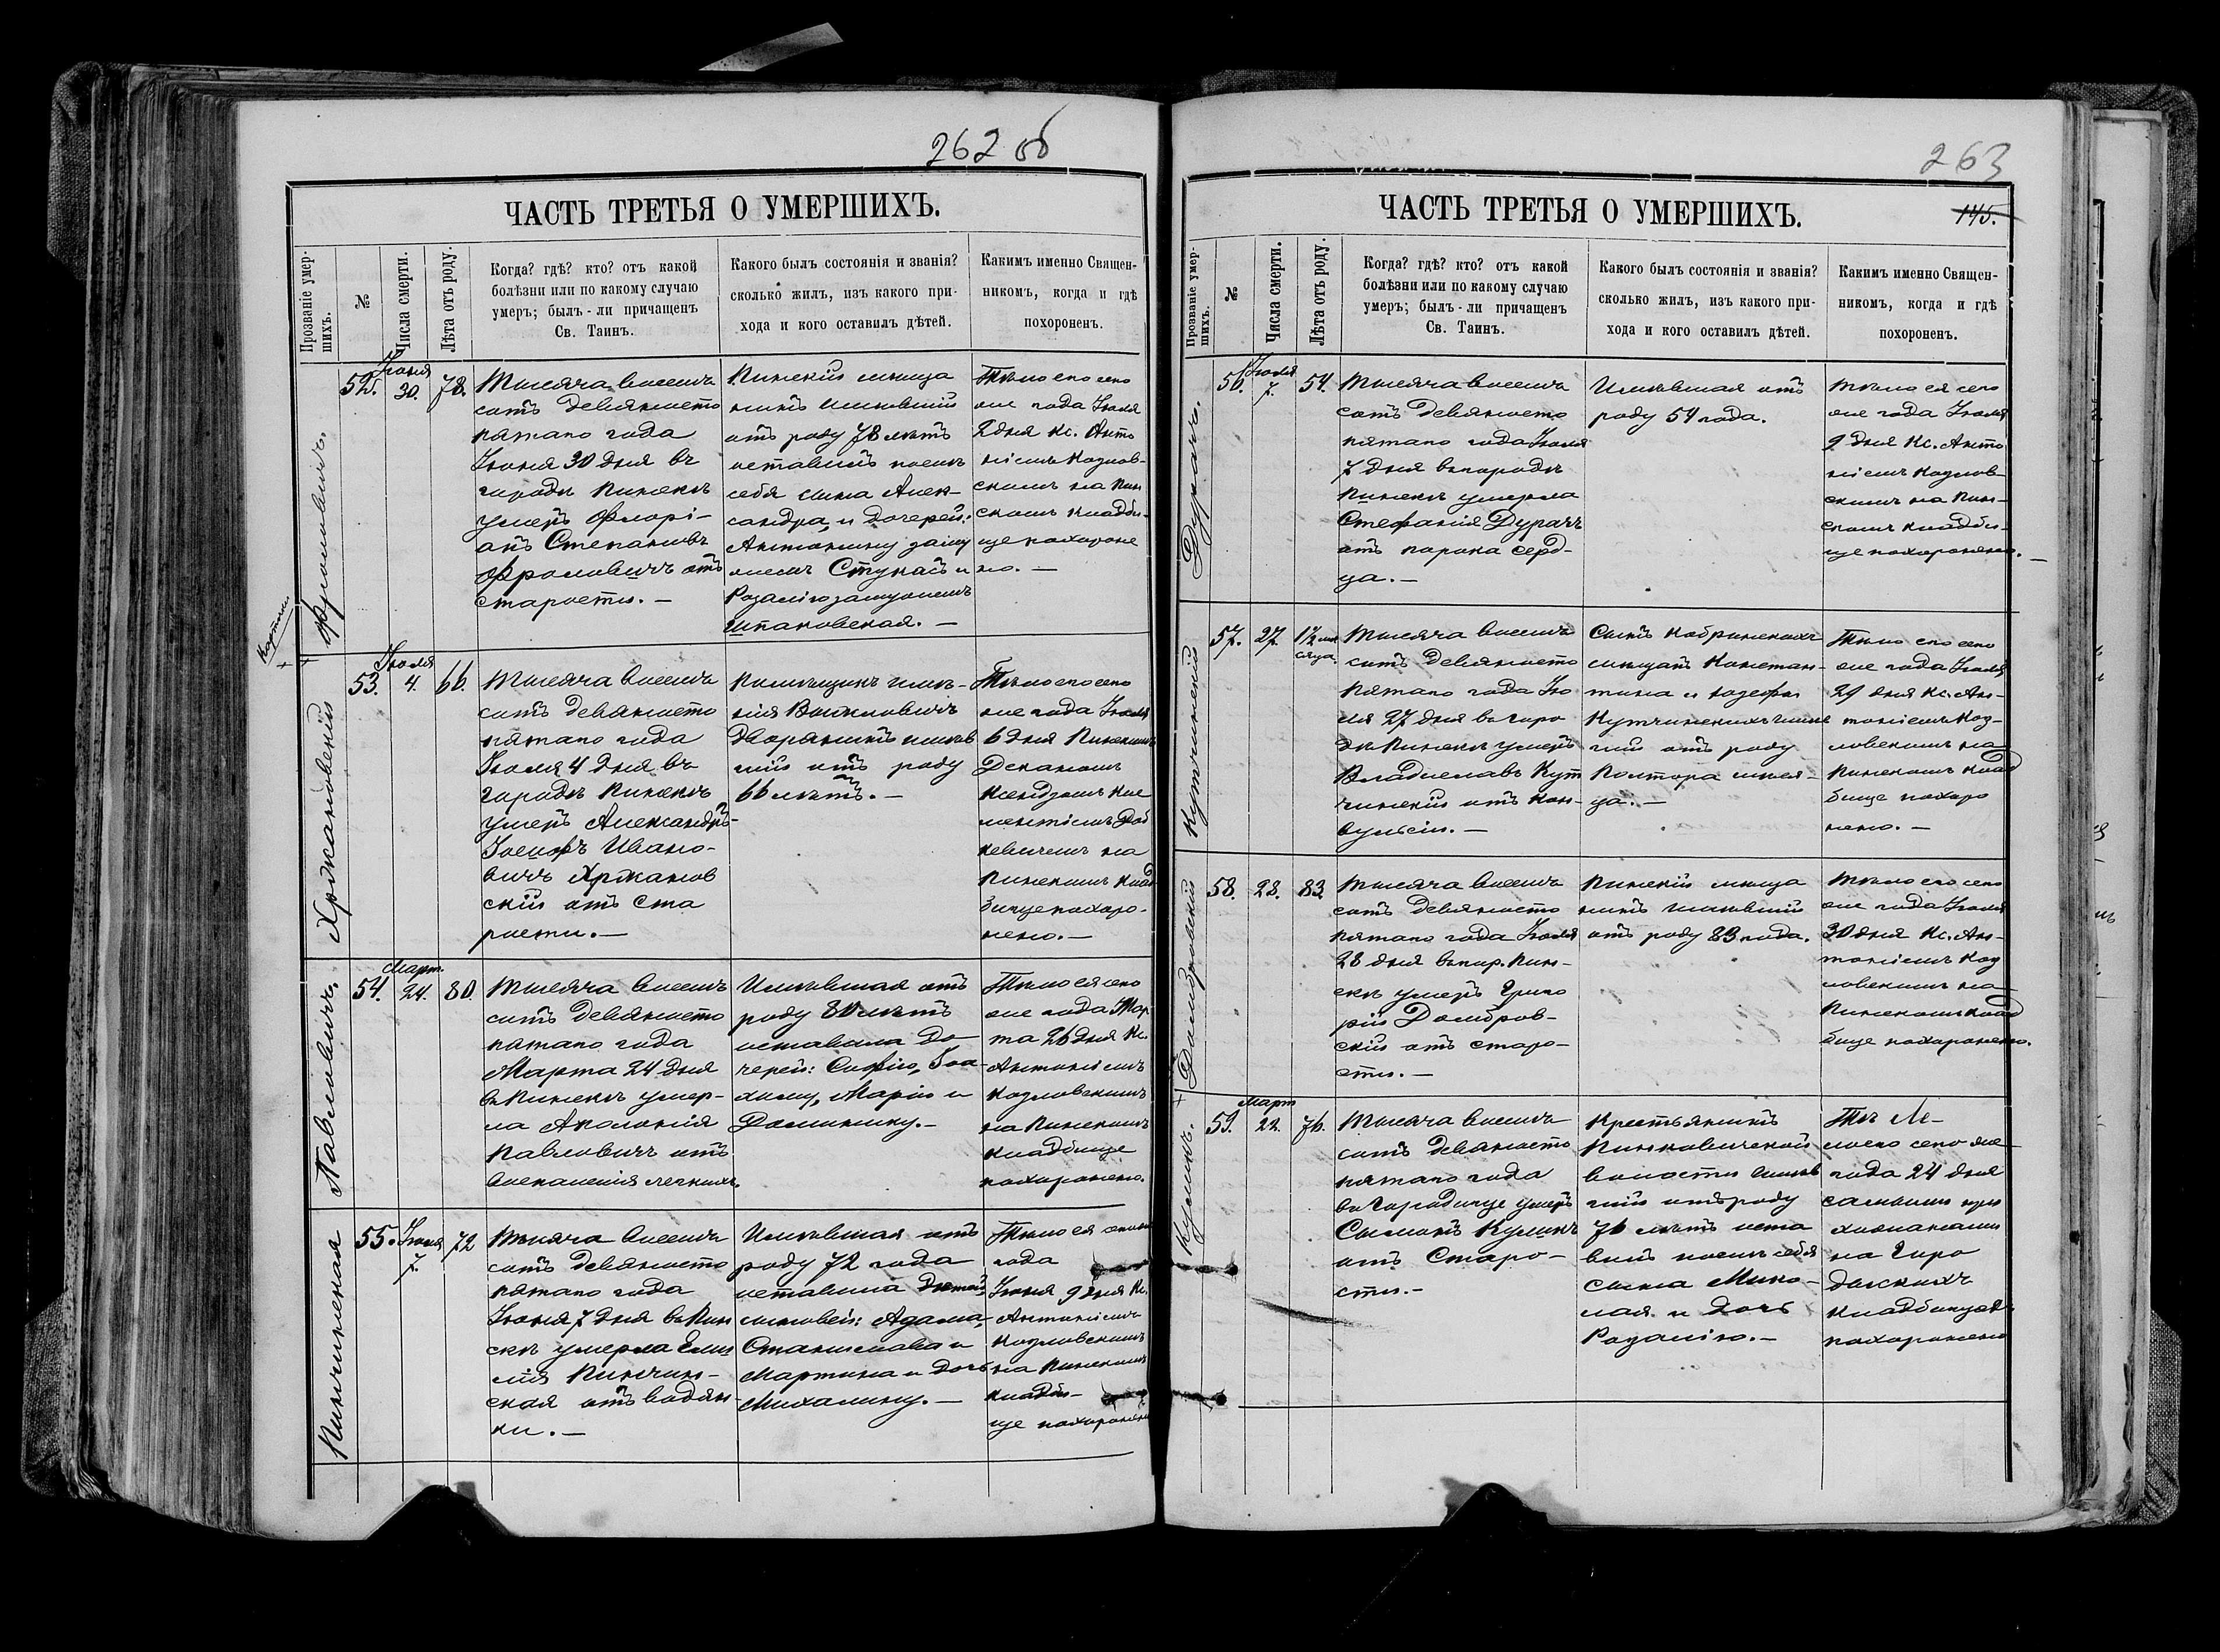 262 об
ЧАСТЬ ТРЕТЬЯ О УМЕРШИХЪ.
Прозваніе умер-
шихъ.
№
Числа смерти.
Лѣта отъ роду.
Когда? гдѣ? кто? отъ какой
болѣзни или по какому случаю
умеръ; былъ-ли причащенъ
Св. Таинъ.
Какого былъ состоянія и званія?
сколько жилъ, изъ какого при-
хода и кого оставилъ дѣтей.
Какимъ именно Священ-
никомъ, когда и гдѣ
похороненъ.
Фроловичъ.
52.
Іюня
30.
78.
Тысяча восемь
сотъ девяносто
пятаго года
Іюня 30 дня въ
городѣ Пинскѣ
умеръ Флорі-
анъ Степановъ
Фроловичъ отъ
старости. —
Пинскій мѣща
нинъ имѣвшій
отъ роду 78 лѣтъ
оставилъ послѣ
себя сына Алек-
сандра, и дочерей:
Антонину заму
жемъ Стукасъ и
Розалію замужемъ
Шпаковская. —
Тѣло его сего
же года Іюля
2 дня Кс. Анто
ніемъ Козлов-
скимъ на Пин
скомъ кладби-
ще похороне
но. —
Хржановскій
53.
Іюля
4.
66.
Тысяча восемь
сотъ девяносто
пятаго года
Іюля 4 дня въ
городѣ Пинскѣ
умеръ Александръ-
Іосифъ Ивано-
вичъ Хржанов
скій отъ ста
рости. —
Помѣщикъ имѣ-
нія
Дворянинъ имѣв
шій отъ роду
66 лѣтъ. —
Тѣло его сего
же года Іюля
6 дня Пинскимъ
Деканомъ
Ксендзомъ Кле
ментіемъ
на
Пинскомъ клад
бище похоро-
нено. —
Павловичъ.
54.
Март.
24.
80.
Тысяча восемь
сотъ девяносто
пятаго года
Марта 24 дня
въ Пинскѣ умер-
ла Аполонія
Павловичъ отъ
воспаленія легкихъ.
Имѣвшая отъ
роду 80 лѣтъ
оставила до-
черей: Софію, Іоа-
химу, Марію и
Доминику. —
Тѣло ея сего
же года Мар
та 26 дня Кс.
Антоніемъ
Козловскимъ
на Пинскомъ
кладбище
похоронено.
Пинчинская
55.
Іюня
7.
72
Тысяча восемь
сотъ девяносто
пятаго года
Іюня 7 дня въ Пин
скѣ умерла Эми
лія Пинчин-
ская отъ водян-
ки. —
Имѣвшая отъ
роду 72 года
оставила дѣтей
сыновей: Адама,
Станислава и
Мартина и дочь
Михалину. —
Тѣло ея
года
Іюня 9 дня Кс.
Антоніемъ
Козловскимъ
на Пинскомъ
кладби-
ще похоронено
263
ЧАСТЬ ТРЕТЬЯ О УМЕРШИХЪ.
145.
Прозваніе умер-
шихъ.
№
Числа смерти.
Лѣта отъ роду.
Когда? гдѣ? кто? отъ какой
болѣзни или по какому случаю
умеръ; былъ-ли причащенъ
Св. Таинъ.
Какого былъ состоянія и званія?
сколько жилъ, изъ какого при-
хода и кого оставилъ дѣтей.
Какимъ именно Священ-
никомъ, когда и гдѣ
похороненъ.
Дурачъ.
56.
Іюля
7.
54.
Тысяча восемь
сотъ девяносто
пятаго года Іюля
7 дня въ городѣ
Пинскѣ умерла
Стефанія Дурачъ
отъ порока серд-
ца. —
Имѣвшая отъ
роду 54 года.
Тѣло ея сего
же года Іюля
9 дня Кс. Анто
ніемъ Козлов-
скимъ на Пин-
скомъ кладби-
ще похоронено. —
Кутчинскій
57.
27.
1½ мѣ
сяца.
Тысяча восемь
сотъ девяносто
пятаго года Ію
ля 27 дня въ горо
дѣ Пинскѣ умеръ
Владиславъ Кут
чинскій отъ кон-
вульсіи. —
Сынъ Кобринскихъ
мѣщанъ Констан-
тина и Юзефы
Кутчинскихъ имѣв
шій отъ роду
полтора мѣся-
ца. —
Тѣло его сего
же года Іюля
29 дня Кс. Ан-
тоніемъ Коз-
ловскимъ на
Пинскомъ клад
бище похоро
нено. —
Домбровскій
58.
28.
83.
Тысяча восемь
сотъ девяносто
пятаго года Іюля
28 дня въ гор. Пин-
скѣ умеръ Григо
рій Домбров-
скій отъ старо-
сти. —
Пинскій мѣща
нинъ имѣвшій
отъ роду 83 года.
Тѣло его сего
же года Іюля
30 дня Кс. Ан-
тоніемъ Коз
ловскимъ на
Пинскомъ клад
бище похоронено.
Куликъ.
59.
Март
22.
76.
Тысяча восемь
сотъ девяносто
пятаго года
въ Городище умеръ
Сымонъ Куликъ
отъ старо-
сти. —
Крестьянинъ
Пинковичской
волости имѣв
шій отъ роду
76 лѣтъ оста
вилъ послѣ себя
сына Мико-
лая и дочь
Розалію. —
сего же
года 24 дня
самыми при
хожанами
на Горо
дискихъ
кладбищахъ
похоронено